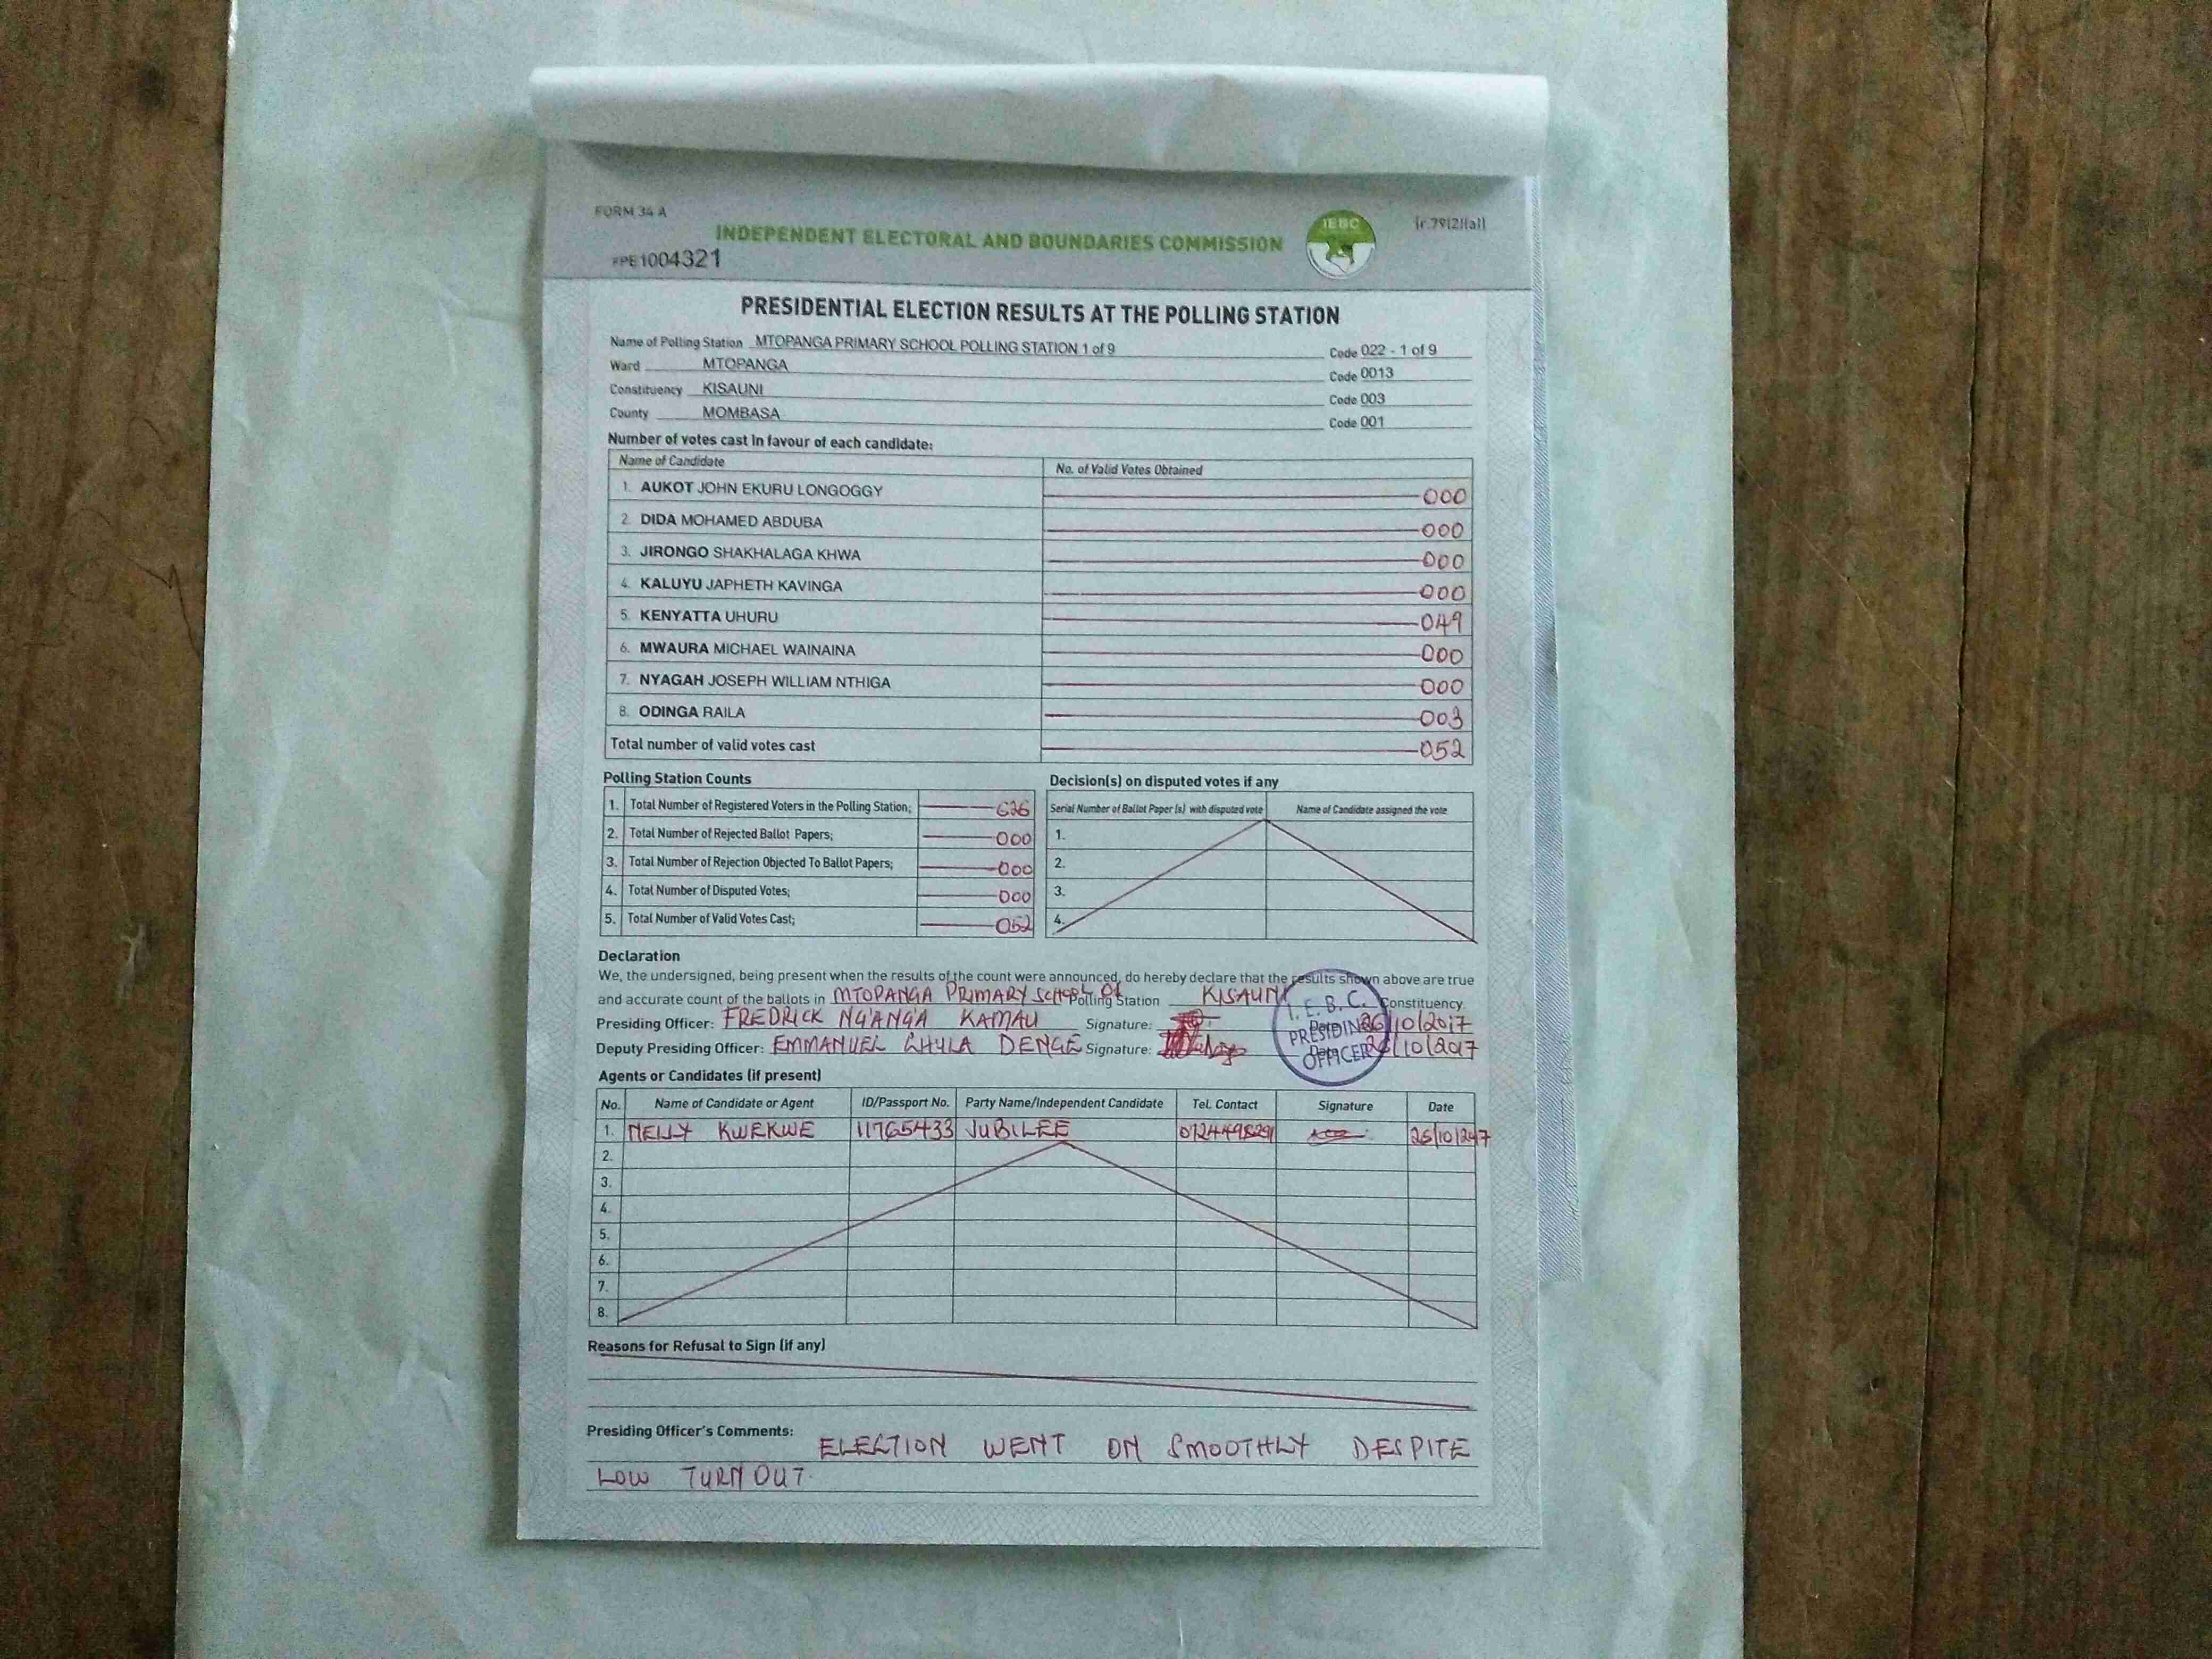 FORM 34 A
INDEPENDENT ELECTORAL AND BOUNDARIES COMMISSION
IEBC
(r.79(2)(a))
FPE1004321
PRESIDENTIAL ELECTION RESULTS AT THE POLLING STATION
Name of Polling Station MTOPANGA PRIMARY SCHOOL POLLING STATION 1 of 9 Code 022 - 1 of 9
Ward MTOPANGA Code 0013
Constituency KISAUNI Code 003
County MOMBASA Code 001
Number of votes cast in favour of each candidate:
Name of Candidate No. of Valid Votes Obtained
1. AUKOT JOHN EKURU LONGOGGY 000
2. DIDA MOHAMED ABDUBA 000
3. JIRONGO SHAKHALAGA KHWA 000
4. KALUYU JAPHETH KAVINGA 000
5. KENYATTA UHURU 049
6. MWAURA MICHAEL WAINAINA 000
7. NYAGAH JOSEPH WILLIAM NTHIGA 000
8. ODINGA RAILA 003
Total number of valid votes cast 052
Polling Station Counts
1. Total Number of Registered Voters in the Polling Station; 626
2. Total Number of Rejected Ballot Papers; 000
3. Total Number of Rejection Objected To Ballot Papers; 000
4. Total Number of Disputed Votes; 000
5. Total Number of Valid Votes Cast; 052
Decision(s) on disputed votes if any
Serial Number of Ballot Paper (s) with disputed vote Name of Candidate assigned the vote
1.
2.
3.
4.
Declaration
We, the undersigned, being present when the results of the count were announced, do hereby declare that the results shown above are true
and accurate count of the ballots in MTOPANGA PRIMARY SCHOOL Polling Station KISAUNI Constituency.
Presiding Officer: FREDRICK NG'ANG'A KAMAU Signature: Date 26/10/2017
Deputy Presiding Officer: EMMANUEL CHULA DENGE Signature: Date 26/10/2017
I. E. B. C.
PRESIDING
OFFICER
Agents or Candidates (if present)
No. Name of Candidate or Agent ID/Passport No. Party Name/Independent Candidate Tel. Contact Signature Date
1. NELLY KWEKWE 11765433 JUBILEE 0724498291 26/10/2017
2.
3.
4.
5.
6.
7.
8.
Reasons for Refusal to Sign (if any)
Presiding Officer's Comments: ELECTION WENT ON SMOOTHLY DESPITE
LOW TURN OUT.